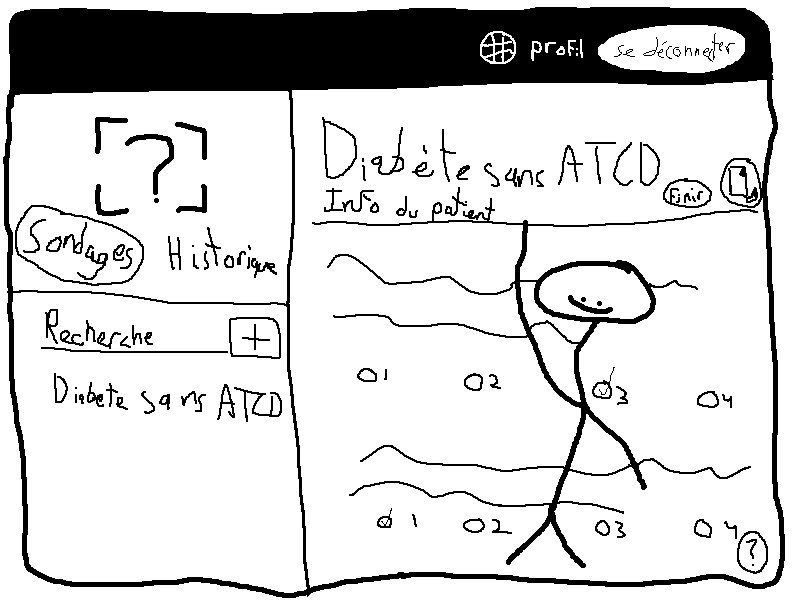 profil se déconnecter
?
Sondages Historique
Recherche +
Diabète sans ATCD
Diabète sans ATCD
Info du patient
Finir
1 2 3 4
1 2 3 4
?